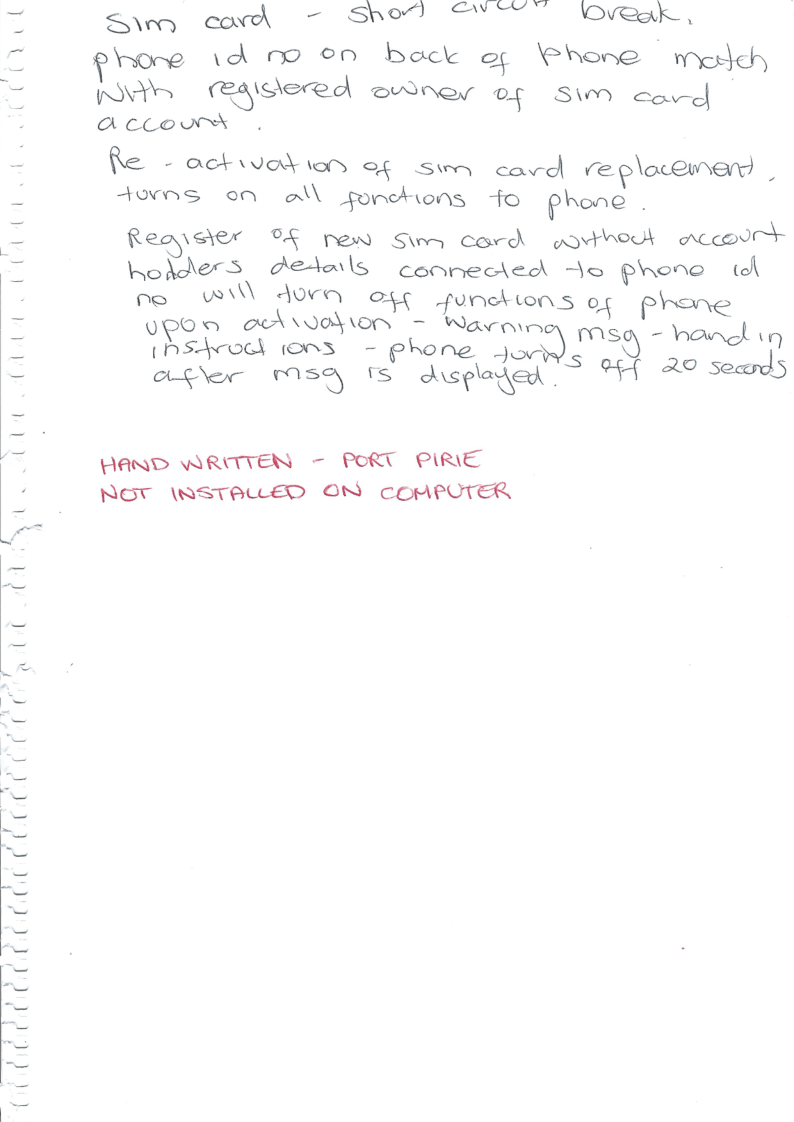 Sim card - short circuit break.
phone id no on back of phone match
with registered owner of sim card
account.
Re - activation of sim card replacement.
turns on all functions to phone.
Register of new sim card without account
holders details connected to phone id
no will turn off functions of phone
upon activation - warning msg - hand in
instructions - phone turns off 20 seconds
after msg is displayed.
HAND WRITTEN - PORT PIRIE
NOT INSTALLED ON COMPUTER